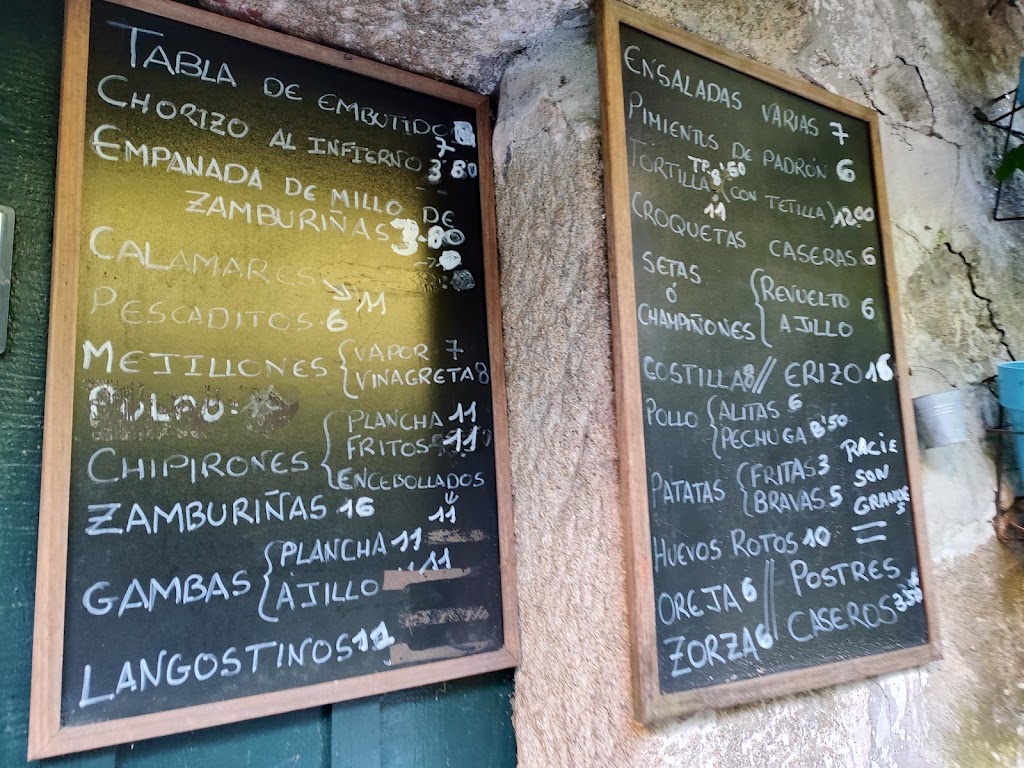 TABLA DE EMBUTIDO
7
CHORIZO AL INFIERNO 3'80
EMPANADA DE MILLO DE
ZAMBURIÑAS 3.80
CALAMARES 11
PESCADITOS 6
MEJILLONES VAPOR 7
VINAGRETA 8
PULPO:
CHIPIRONES PLANCHA 11
FRITOS 11
ENCEBOLLADOS
11
ZAMBURIÑAS 16
GAMBAS PLANCHA 11
AJILLO 11
LANGOSTINOS 11
ENSALADAS VARIAS 7
PIMIENTOS DE PADRÓN 6
TP. 8'50
TORTILLA (CON TETILLA) 12.00
11
CROQUETAS CASERAS 6
SETAS
Ó
CHAMPIÑONES
REVUELTO 6
AJILLO
COSTILLA 8 // ERIZO 16
POLLO ALITAS 6
PECHUGA 8'50
PATATAS FRITAS 3
BRAVAS 5
RACIE
SON
GRANDE
S
HUEVOS ROTOS 10
OREJA 6 // POSTRES
ZORZA 6 CASEROS 3'50